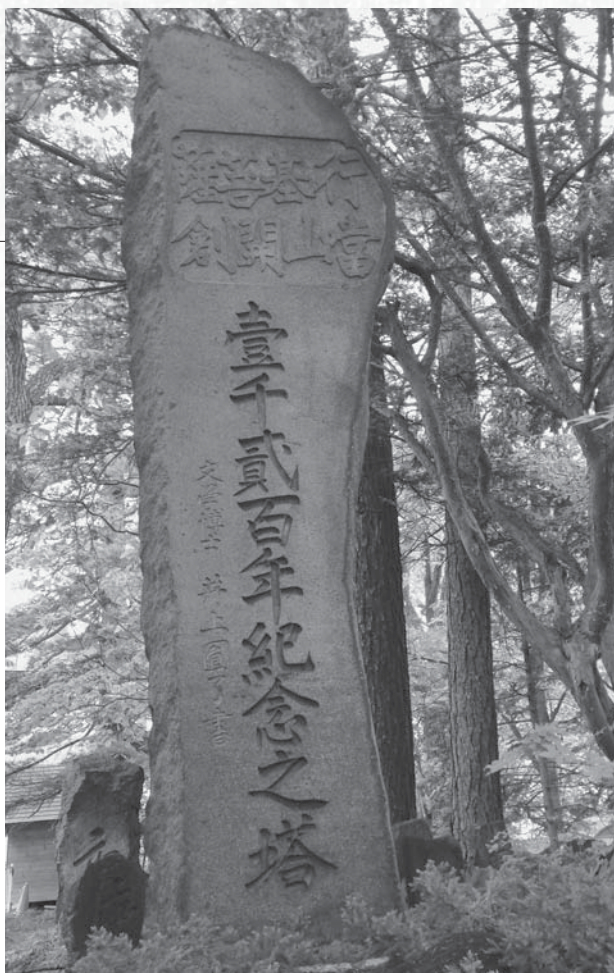 行基菩薩
當山開創
壹千貳百年紀念之塔
文學博士 井上圓了書